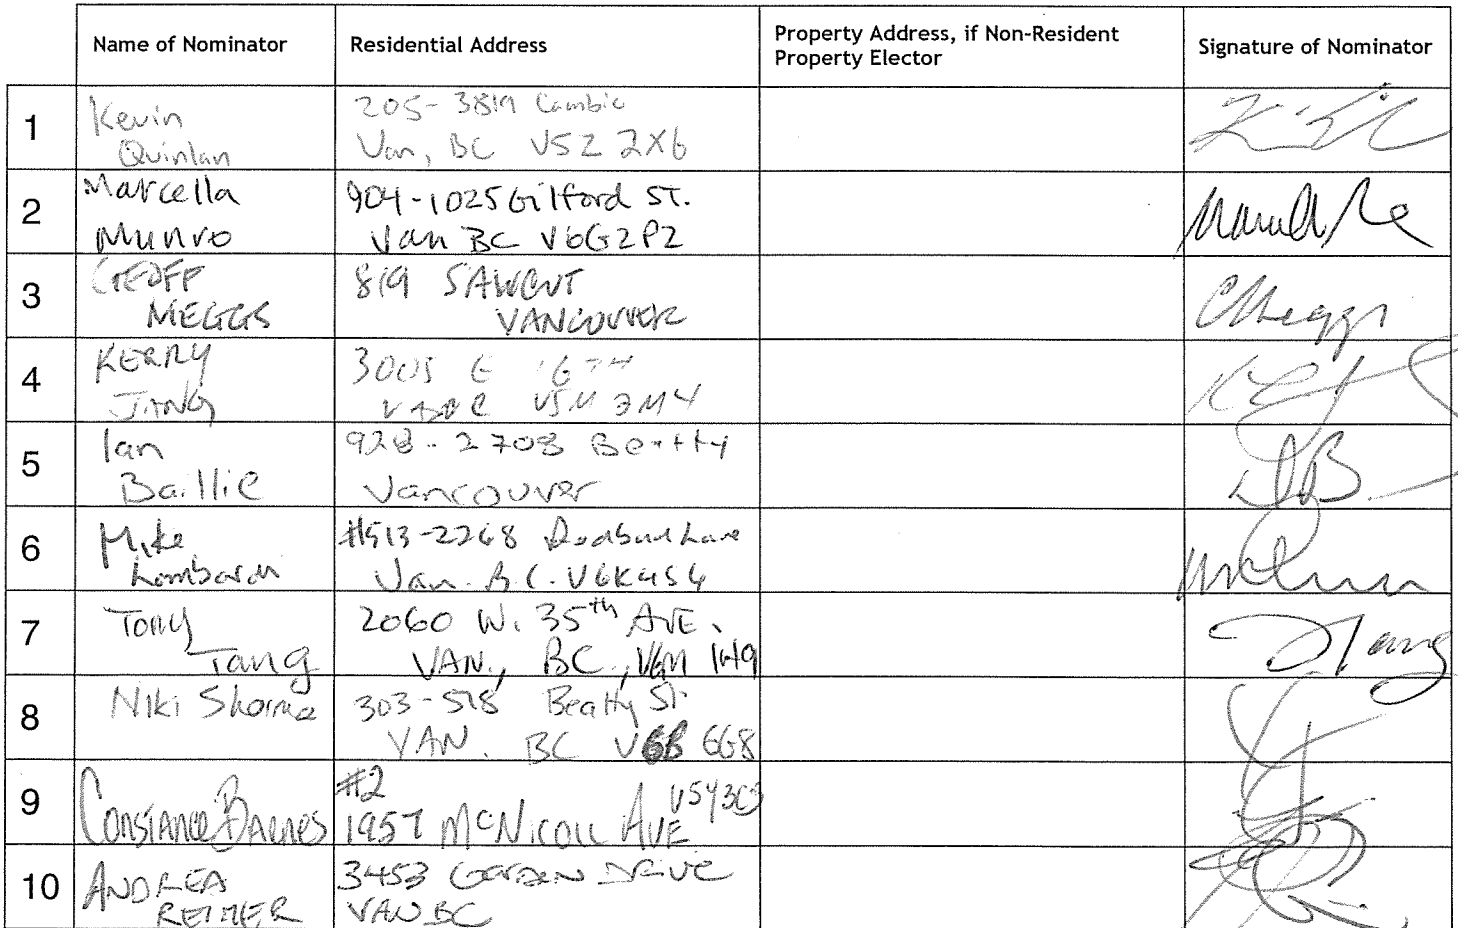 Name of Nominator
Residential Address
Property Address, if Non-Resident
Property Elector
Signature of Nominator
1
Kevin
Quinlan
205-3819 Cambie
Van, BC V5Z 2X6
2
Marcella
Munro
904-1025 Gilford ST.
Van BC V6G2P2
3
GEOFF
MEGGS
819
VANCOUVER
4
KERRY
JANG
3005 E
V5M 3M4
5
Ian
Baillie
928-2708 Beatty
Vancouver
6
Mike
Lombardi
#513-2268 Lane
Van. B.C. V6K4S6
7
Tony
Tang
2060 W. 35th AVE.
VAN., BC., V6M 1H9
8
Niki Sharma
303-518 Beatty St
VAN. BC V6B 6G8
9
Constance Barnes
#2
1957 McNicoll Ave
10
ANDREA
REIMER
3453 DRIVE
VAN BC